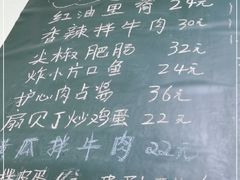 红油里脊 24元
香辣拌牛肉 30元
尖椒肥肠 32元
炸小片口鱼 24元
护心肉占酱 36元
扇贝丁炒鸡蛋 22元
黄瓜拌牛肉 22元